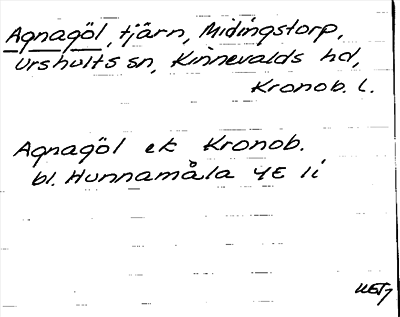 Agnagöl, tjärn, Midingstorp,
Urshults sn, Kinnevalds hd,
Kronob. L.
Agnagöl ek Kronob.
bl. Hunnamåla 4E 1i